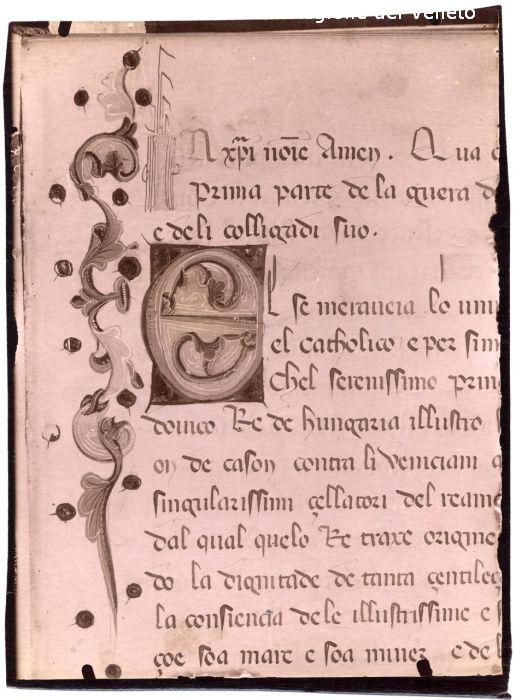 regione del Veneto
In xp̄i noīe Amen. Qua c
prima parte de la guera d
e de li colligadi suo.
El se meraueia lo uniu
el catholico e per sim
Chel serenissimo prin
doinco Re de hungaria illustro
on de cason contra li Veniciani q
singularissimi çellatori del reame
dal qual quelo Re traxe origine
do la dignitade de tanta çentileç
la consiencia de le illustrissime e s
çoe soa mare e soa muier e de l